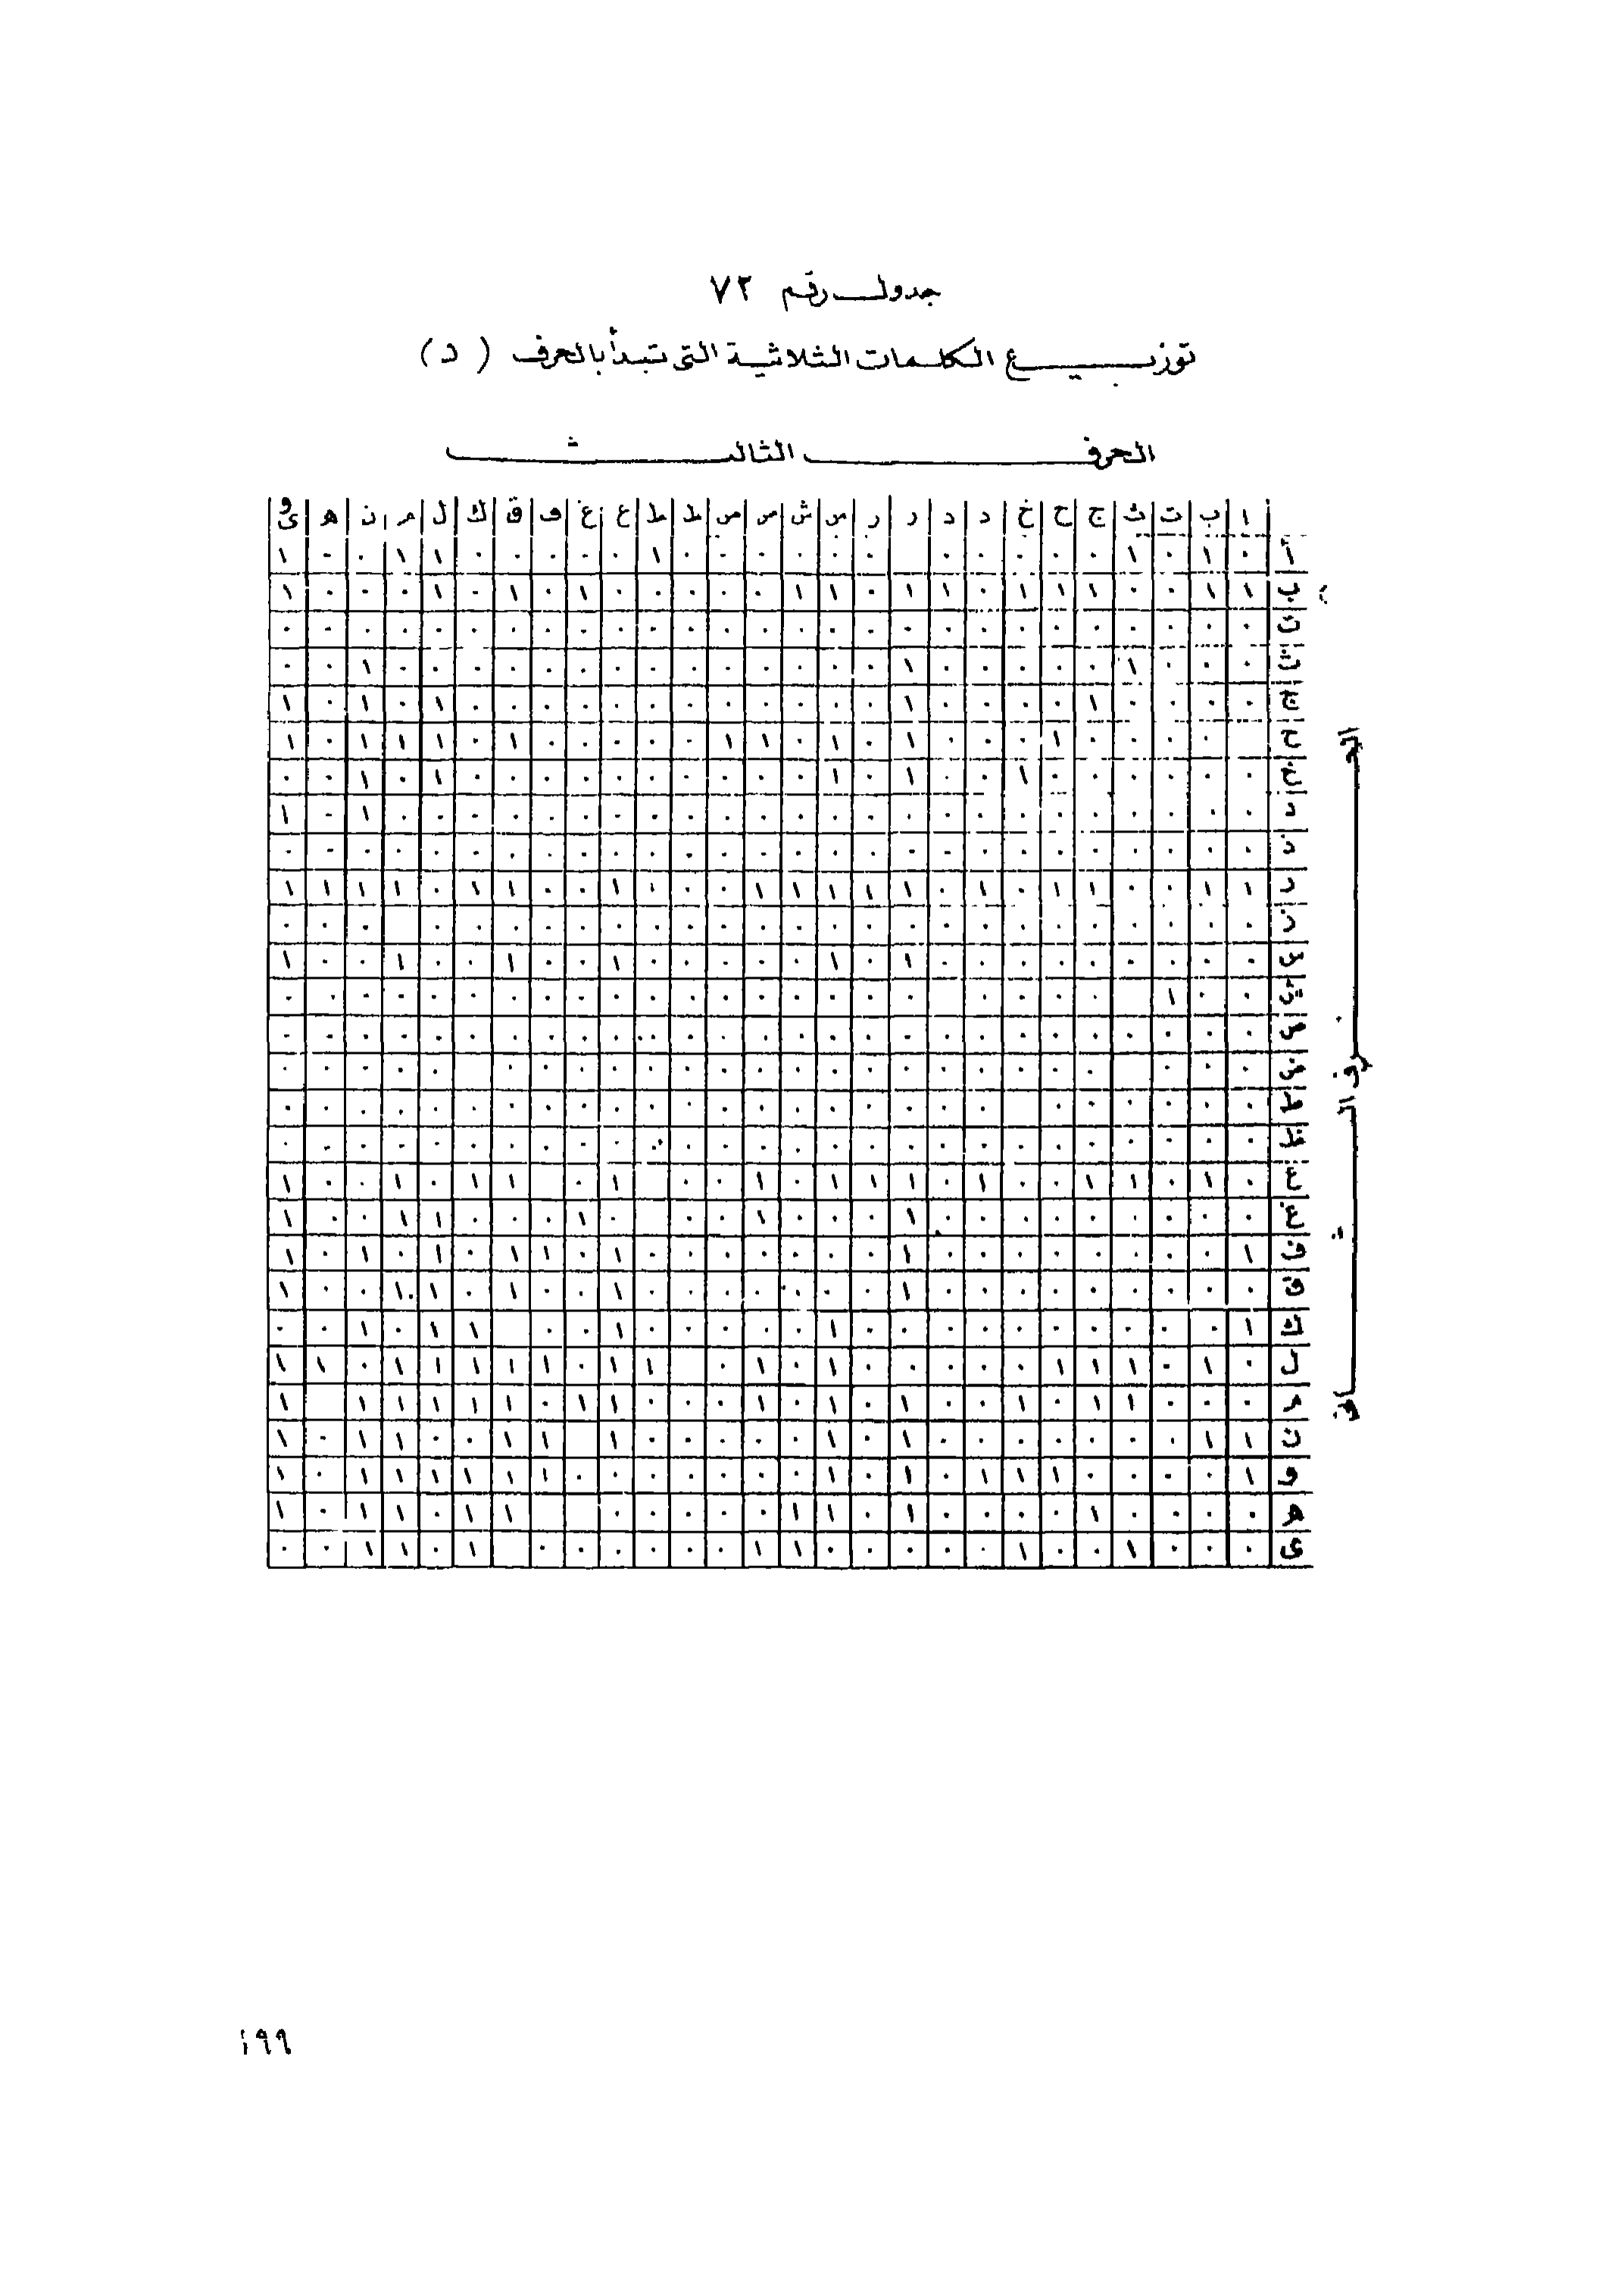 جدول رقم ٧٢
توزيع الكلمات الثلاثية التى تبدأ بالحرف ( د )
الحرف الثالث
الحرف الثانى
ا ب ت ث ج ح خ د د ر ر س ش ص ص ط ط ع غ ف ق ك ل م ن ه و ى
أ ٠ ١ ٠ ١ ٠ ٠ ٠ ٠ ٠ ٠ ٠ ٠ ٠ ٠ ٠ ١ ٠ ٠ ٠ ٠ ٠ ١ ١ ٠ ٠ ١
ب ١ ١ ٠ ٠ ١ ١ ١ ٠ ١ ١ ٠ ١ ١ ٠ ٠ ٠ ٠ ٠ ١ ٠ ١ ٠ ١ ٠ ٠ ٠ ١
ت ٠ ٠ ٠ ٠ ٠ ٠ ٠ ٠ ٠ ٠ ٠ ٠ ٠ ٠ ٠ ٠ ٠ ٠ ٠ ٠ ٠ ٠ ٠ ٠ ٠ ٠ ٠
ث ٠ ٠ ٠ ١ ٠ ٠ ٠ ٠ ٠ ١ ٠ ٠ ٠ ٠ ٠ ٠ ٠ ٠ ٠ ٠ ٠ ٠ ٠ ٠ ١ ٠ ٠
ج ٠ ٠ ٠ ٠ ١ ٠ ٠ ٠ ٠ ١ ٠ ٠ ٠ ٠ ٠ ٠ ٠ ٠ ٠ ٠ ٠ ٠ ١ ٠ ١ ٠ ١
ح ٠ ٠ ٠ ٠ ١ ٠ ٠ ٠ ١ ٠ ١ ٠ ١ ١ ٠ ٠ ٠ ٠ ٠ ١ ٠ ١ ١ ١ ٠ ١
خ ٠ ٠ ٠ ٠ ٠ ٠ ١ ٠ ٠ ١ ٠ ١ ٠ ٠ ٠ ٠ ٠ ٠ ٠ ٠ ٠ ٠ ١ ٠ ١ ٠ ٠
د ٠ ٠ ٠ ٠ ٠ ٠ ٠ ٠ ٠ ٠ ٠ ٠ ٠ ٠ ٠ ٠ ٠ ٠ ٠ ٠ ٠ ٠ ٠ ٠ ١ ٠ ١
ذ ٠ ٠ ٠ ٠ ٠ ٠ ٠ ٠ ٠ ٠ ٠ ٠ ٠ ٠ ٠ ٠ ٠ ٠ ٠ ٠ ٠ ٠ ٠ ٠ ٠ ٠ ٠
ر ١ ١ ٠ ٠ ١ ١ ٠ ١ ٠ ١ ١ ١ ١ ١ ٠ ٠ ٠ ١ ٠ ٠ ١ ١ ٠ ١ ١ ١ ١
ز ٠ ٠ ٠ ٠ ٠ ٠ ٠ ٠ ٠ ٠ ٠ ٠ ٠ ٠ ٠ ٠ ٠ ٠ ٠ ٠ ٠ ٠ ٠ ٠ ٠ ٠
س ٠ ٠ ٠ ٠ ٠ ٠ ٠ ٠ ٠ ١ ٠ ١ ٠ ٠ ٠ ٠ ٠ ١ ٠ ٠ ١ ٠ ٠ ١ ٠ ٠ ١
ش ٠ ٠ ١ ٠ ٠ ٠ ٠ ٠ ٠ ٠ ٠ ٠ ٠ ٠ ٠ ٠ ٠ ٠ ٠ ٠ ٠ ٠ ٠ ٠ ٠
ص ٠ ٠ ٠ ٠ ٠ ٠ ٠ ٠ ٠ ٠ ٠ ٠ ٠ ٠ ٠ ٠ ٠ ٠ ٠ ٠ ٠ ٠ ٠ ٠ ٠ ٠ ٠
ض ٠ ٠ ٠ ٠ ٠ ٠ ٠ ٠ ٠ ٠ ٠ ٠ ٠ ٠ ٠ ٠ ٠ ٠ ٠ ٠ ٠ ٠ ٠ ٠ ٠
ط ٠ ٠ ٠ ٠ ٠ ٠ ٠ ٠ ٠ ٠ ٠ ٠ ٠ ٠ ٠ ٠ ٠ ٠ ٠ ٠ ٠ ٠ ٠ ٠
ظ ٠ ٠ ٠ ٠ ٠ ٠ ٠ ٠ ٠ ٠ ٠ ٠ ٠ ٠ ٠ ٠ ٠ ٠ ٠ ٠ ٠ ٠ ٠ ٠ ٠ ٠
ع ٠ ١ ٠ ١ ١ ٠ ٠ ١ ٠ ١ ١ ١ ٠ ١ ٠ ٠ ٠ ١ ٠ ١ ١ ٠ ١ ٠ ٠ ١
غ ٠ ٠ ٠ ٠ ٠ ٠ ٠ ٠ ٠ ١ ٠ ٠ ٠ ١ ٠ ٠ ٠ ١ ٠ ٠ ٠ ١ ١ ٠ ٠ ١
ف ١ ٠ ٠ ٠ ٠ ٠ ٠ ٠ ٠ ١ ٠ ٠ ٠ ٠ ٠ ٠ ٠ ١ ٠ ١ ١ ٠ ١ ٠ ١ ٠ ١
ق ٠ ٠ ٠ ٠ ٠ ٠ ٠ ٠ ٠ ١ ٠ ٠ ٠ ٠ ٠ ٠ ٠ ١ ٠ ٠ ١ ٠ ١ ١ ٠ ٠ ١
ك ١ ٠ ٠ ٠ ٠ ٠ ٠ ٠ ٠ ٠ ٠ ١ ٠ ٠ ٠ ٠ ٠ ١ ٠ ٠ ١ ١ ٠ ١ ٠ ٠
ل ٠ ١ ٠ ١ ١ ١ ٠ ٠ ٠ ٠ ٠ ١ ٠ ١ ٠ ١ ١ ٠ ١ ١ ١ ١ ١ ٠ ١ ١
م ٠ ٠ ٠ ١ ١ ٠ ١ ٠ ٠ ١ ٠ ١ ٠ ١ ٠ ٠ ٠ ١ ١ ٠ ١ ١ ١ ١ ١ ١
ن ١ ١ ٠ ٠ ٠ ٠ ٠ ٠ ٠ ١ ٠ ١ ٠ ٠ ٠ ٠ ٠ ١ ١ ١ ٠ ٠ ١ ١ ٠ ١
و ١ ٠ ٠ ٠ ٠ ١ ١ ١ ٠ ١ ٠ ١ ٠ ٠ ٠ ٠ ٠ ٠ ٠ ١ ١ ١ ١ ١ ١ ٠ ١
ه ٠ ٠ ٠ ٠ ١ ٠ ٠ ٠ ٠ ١ ٠ ١ ١ ٠ ٠ ٠ ٠ ٠ ١ ١ ٠ ١ ١ ٠ ١
ى ٠ ٠ ٠ ١ ٠ ٠ ١ ٠ ٠ ٠ ٠ ٠ ١ ١ ٠ ٠ ٠ ٠ ٠ ٠ ١ ٠ ١ ١ ٠ ٠
١٩٩